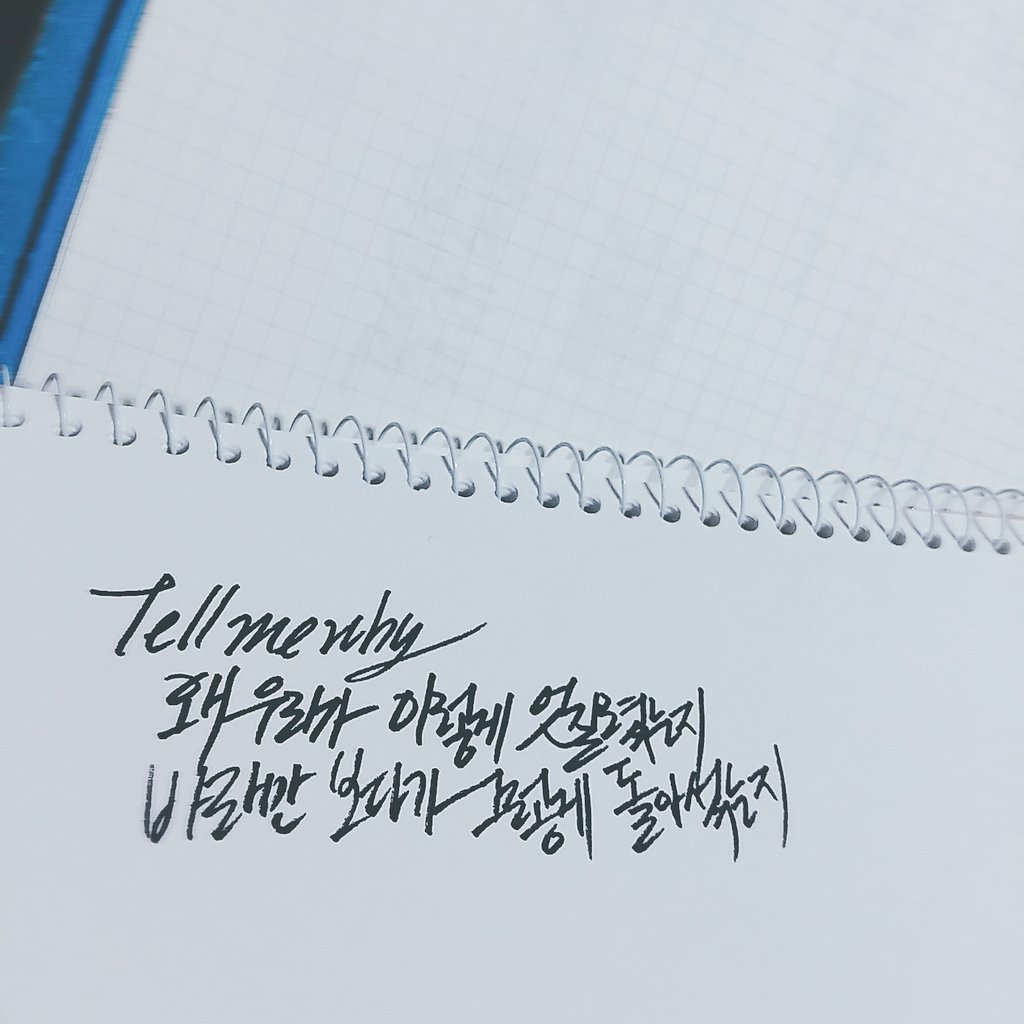 Tell me why
왜 우리가 이렇게 엇갈렸는지
바라만 보다가 그렇게 돌아섰는지